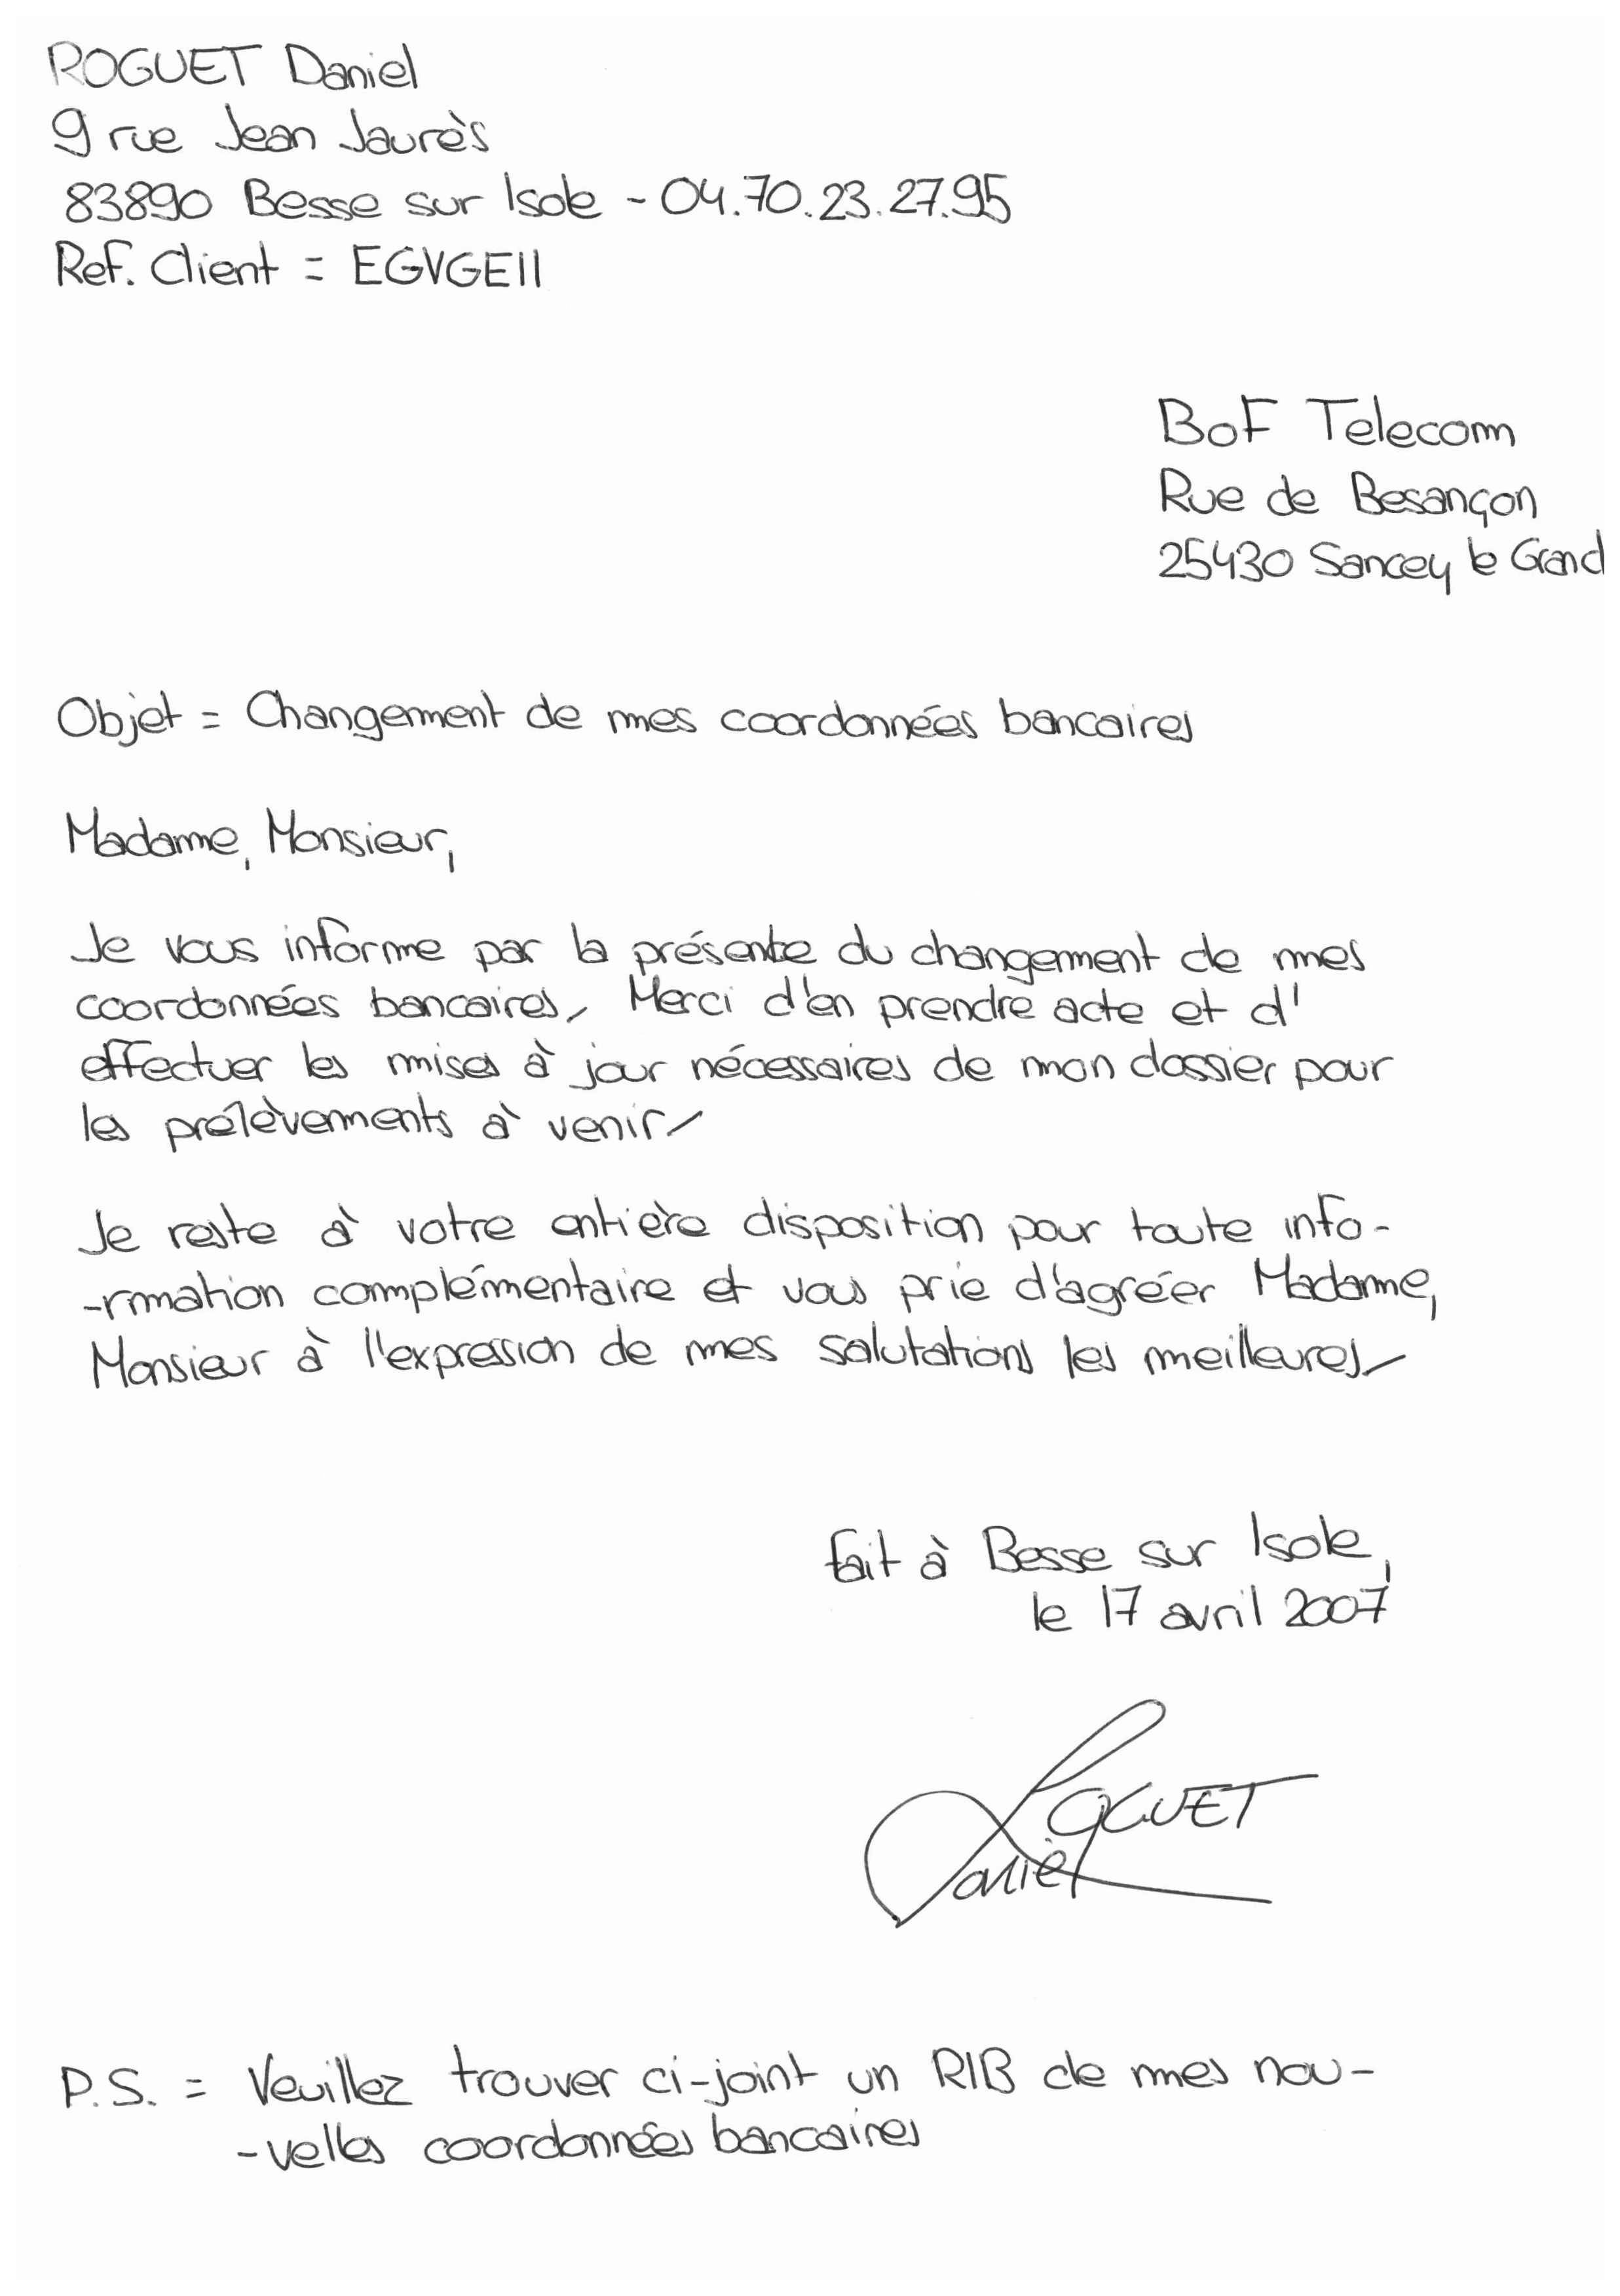 ROGUET Daniel
9 rue Jean Jaurès
83890 Besse sur Isole - 04.70.23.27.95
Ref. Client = EGVGE11
BoF Telecom
Rue de Besançon
25430 Sancey le Grand
Objet = Changement de mes coordonnées bancaires
Madame, Monsieur,
Je vous informe par la présente du changement de mes
coordonnées bancaires. Merci d'en prendre acte et d'
effectuer les mises à jour nécessaires de mon dossier pour
les prélèvements à venir.
Je reste à votre entière disposition pour toute info-
-rmation complémentaire et vous prie d'agréer Madame,
Monsieur à l'expression de mes salutations les meilleures.
Fait à Besse sur Isole,
le 17 avril 2007
ROGUET
Daniel
P.S. = Veuillez trouver ci-joint un RIB de mes nou-
-velles coordonnées bancaires